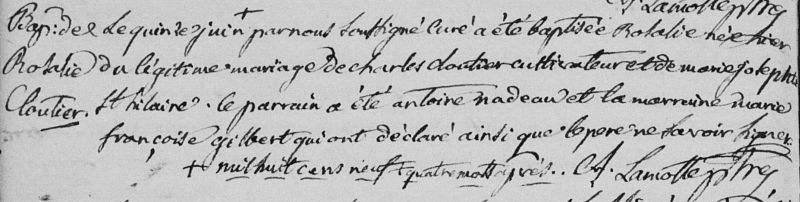 A. Lamotte ptre
Bap: de Le quinze juin + par nous soussigné curé a été baptisée Rosalie née hier
Rosalie du légitime mariage de charles cloutier cultivateur et de marie josephte
Cloutier. St hilaire. le parrain a été antoine nadeau et la marraine marie
françoise gilbert qui ont déclaré ainsi que le pere ne savoir signer.
+ mil huit cens neuf + quatre mots après.. A. Lamotte ptre